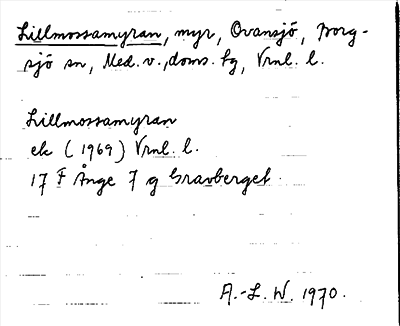 Lillmossamyran, myr, Ovansjö, Borg-
sjö sn, Med. v., doms. fg, Vrnl. l.
Lillmossamyran
ek (1969) Vrnl. l.
17 F Ånge 7 g Gravberget.
A.-L. W. 1970.